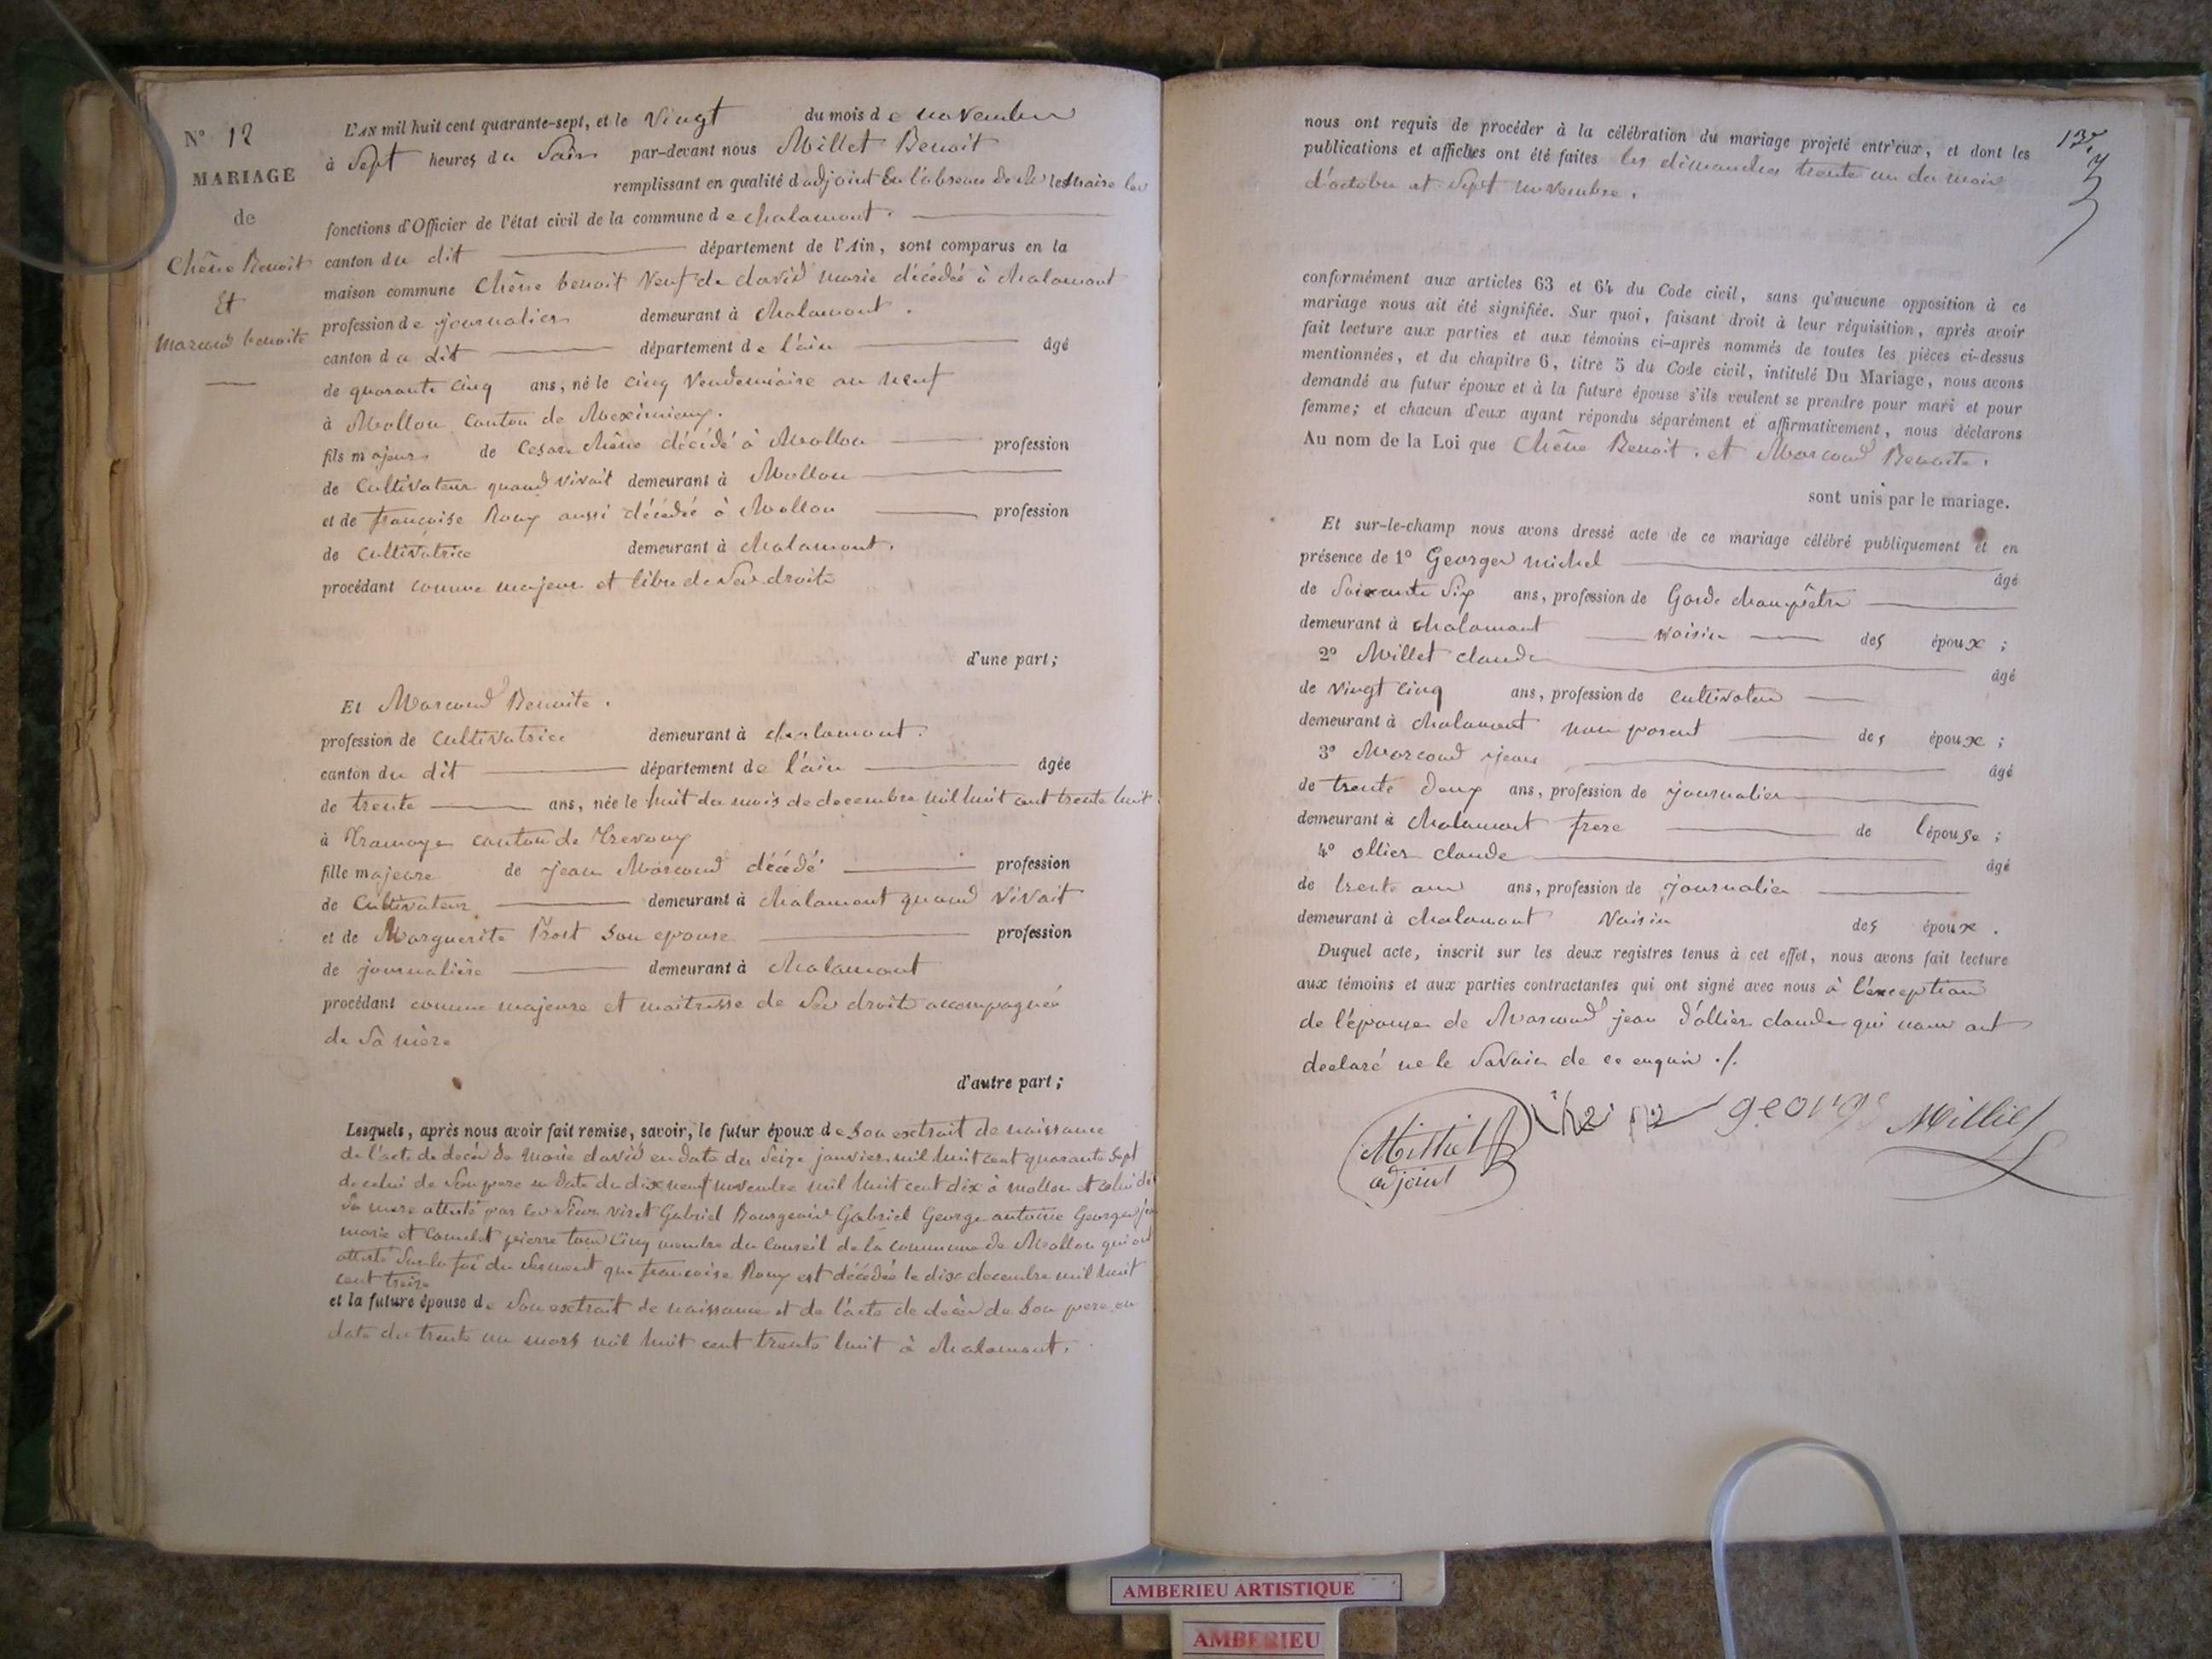 N° 12
MARIAGE
de
Chêne Benoit
Et
Marcond benoite
L'AN mil huit cent quarante-sept, et le Vingt du mois de novembre
à Sept heures du Soir par-devant nous Millet Benoit
remplissant en qualité d'adjoint En l'absence de Mr le Maire les
fonctions d'Officier de l'état civil de la commune de chalamont.
canton du dit département de l'Ain, sont comparus en la
maison commune Chêne benoit Veuf de david marie décédée à chalamont
profession de journalier demeurant à chalamont.
canton du dit département de l'ain âgé
de quarante cinq ans, né le cinq Vendemiaire an neuf
à Mollon canton de Meximieux.
fils majeur de Cesar chêne décédé à Mollon profession
de Cultivateur quand vivait demeurant à Mollon
et de françoise Roux aussi décédée à Mollon profession
de Cultivatrice demeurant à chalamont.
procédant comme majeur et libre de Ses droits
d'une part;
Et Marcond Benoite.
profession de Cultivatrice demeurant à chalamont.
canton du dit département de l'ain âgée
de trente ans, née le huit du mois de decembre mil huit cent trente huit
à Tramoye canton de Trevoux
fille majeure de jean Marcond décédé profession
de Cultivateur demeurant à chalamont quand Vivait
et de Marguerite Prost son epouse profession
de journalière demeurant à chalamont
procédant comme majeure et maitresse de Ses droits accompagnée
de Sa mère
d'autre part;
Lesquels, après nous avoir fait remise, savoir, le futur époux de Son extrait de naissance
de l'acte de decès de Marie david en date du Seize janvier mil huit cent quarante Sept
de celui de Son pere en date du dix neuf novembre mil huit cent dix à mollon et celui de
Sa mere attesté par les Sieurs Viret Gabriel Bourgeois Gabriel George antoine George
marie et Comelet pierre tous Cinq membre du Conseil de la commune de Mollon qui ont
attesté Sur la foi du Serment que francoise Roux est décédée le dix decembre mil huit
cent treize
et la future épouse de Son extrait de naissance et de l'acte de decès de Son pere en
date du trente un mars mil huit cent trente huit à chalamont.
nous ont requis de procéder à la célébration du mariage projeté entr'eux, et dont les
publications et affiches ont été faites les dimanches trente un du mois
d'octobre et Sept novembre.
conformément aux articles 63 et 64 du Code civil, sans qu'aucune opposition à ce
mariage nous ait été signifiée. Sur quoi, faisant droit à leur réquisition, après avoir
fait lecture aux parties et aux témoins ci-après nommés de toutes les pièces ci-dessus
mentionnées, et du chapitre 6, titre 5 du Code civil, intitulé Du Mariage, nous avons
demandé au futur époux et à la future épouse s'ils veulent se prendre pour mari et pour
femme; et chacun d'eux ayant répondu séparément et affirmativement, nous déclarons
Au nom de la Loi que Chêne Benoit. et Marcond Benoite.
sont unis par le mariage.
Et sur-le-champ nous avons dressé acte de ce mariage célébré publiquement et en
présence de 1° Georges michel âgé
de Soixante Six ans, profession de Garde champêtre
demeurant à chalamont voisin des époux;
2° Millet claude âgé
de Vingt Cinq ans, profession de cultivateur
demeurant à chalamont non parent des époux;
3° Marcond jean âgé
de trente Deux ans, profession de journalier
demeurant à chalamont frere de l'épouse;
4° ollier claude âgé
de trente ans, profession de journalier
demeurant à chalamont Voisin des époux.
Duquel acte, inscrit sur les deux registres tenus à cet effet, nous avons fait lecture
aux témoins et aux parties contractantes qui ont signé avec nous à l'exception
de l'épouse de Marcond jean d'ollier claude qui nous ont
declaré ne le Savoir de ce enquis ./.
Millet
adjoint
george
Milliet
AMBERIEU ARTISTIQUE
AMBERIEU